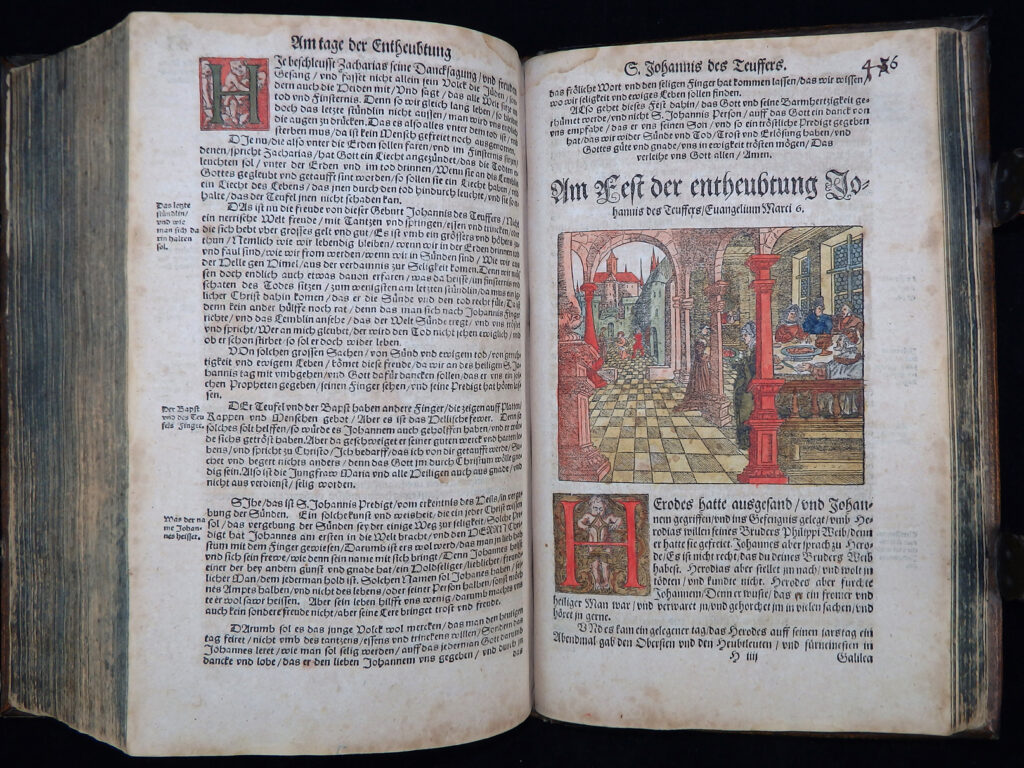 Am tage der Entheubtung
HJe beschleusst Zacharias seine Dancksagung/vnd freuden
Gesang/vnd fasset nicht allein sein Volck die Jüden/son
dern auch die Heiden mit/Vnd sagt/das alle Welt sitze im
tod vnd Finsternis. Denn so wir gleich lang leben/so
doch das letzte stündlin nicht aussen/man wird vns endlich
die augen zu drücken. Das es also alles vnter dem tod ist/vnd
sterben mus/da ist kein Mensch gefreiet noch ausgenomen.
DJe nu/die also vnter die Erden sollen faren/vnd im Finsternis
denen/spricht Zacharias/hat Gott ein Liecht angezündet/das die Todten
leuchten sol/vnter der Erden vnd im tod drinnen/Wenn sie an die
Gottes gegleubt vnd getaufft sint worden/so sollen sie ein Liecht haben/
ein Liecht des Lebens/das jnen durch den tod hindurch leuchte/vnd sie
halte/das der Teufel jnen nicht schaden kan.
DAs ist nu die freude von dieser Geburt Johannis des Teuffers/Nicht
ein nerrische Welt freude/mit Tantzen vnd springen/essen vnd trincken/
die sich hebt vber grosses gelt vnd gut/Es ist vmb ein grössers vnd höhers zu
thun/Nemlich wie wir lebendig bleiben/wenn wir in der Erden drinnen
vnd faul sind/wie wir from werden/wenn wir in Sünden sind/Wie wir aus
der Helle gen Himel/aus der verdamnis zur Seligkeit komen. Denn wir
sen doch endlich auch etwas dauon erfaren/was da heisse/im finsternis vnd
schaten des Todes sitzen/zum wenigsten am letzten stündlin/da mus ein
licher Christ dahin komen/das er die Sünde vnd den tod recht füle/Da ist
denn kein ander hülffe noch rat/denn das man sich nach Johannis Finger
richte/vnd das Lemblin ansehe/das der Welt Sünde tregt/vnd vns tröstet
vnd spricht/Wer an mich gleubet/der wird den Tod nicht sehen ewiglich/vnd
ob er schon stirbet/so sol er doch wider leben.
Das letzte
stündlin/
vnd wie
man sich da
rin halten
sol.
VOn solchen grossen Sachen/von Sünd vnd ewigem tod/von gerech
tigkeit vnd ewigem Leben/kömet diese freude/da wir an des heiligen S. Jo
hannis tag mit vmbgehen/vnd Gott dafür dancken sollen/das er vns ein
chen Propheten gegeben/seinen Finger sehen/vnd seine Predigt hat hören las
sen.
DEr Teufel vnd der Bapst haben andere Finger/die zeigen auff Platten/
Kappen vnd Menschen gebot/Aber es ist das Hellischefewer. Denn
solches solt helffen/so würde es Johannem auch geholffen haben/vnd er
de sichs getröst haben. Aber da geschweiget er seiner guten werck vnd harten le
bens/vnd spricht zu Christo/Jch bedarff/das ich von dir getaufft werde/
chet vnd begert nichts anders/denn das Gott jm durch Christum wölle gne
dig sein. Also ist die Jungfraw Maria vnd alle Heiligen auch aus gnade/vnd
nicht aus verdienst selig worden.
Der Bapst
vnd des Teu
fels Finger.
SJhe/das ist S. Johannis Predigt/vom erkentnis des Heils/in verge
bung der Sünden. Ein solche kunst vnd weisheit/die ein jeder Christ wissen
sol/das vergebung der Sünden sey der einige Weg zur seligkeit/Solche Pre
digt hat Johannes am ersten in die Welt bracht/vnd den HERRN Chri
stum mit dem Finger geweiset/Darumb ist er es wol werd/das man jn lieb hab
vnd sich sein frewe/wie denn sein name mit sich bringet/Denn Johannes heisst
einer der bey andern günst vnd gnade hat/ein Holdseliger/lieblicher/freund
licher Man/dem jederman hold ist. Solchen Namen sol Johannes haben/sei
nes Ampts halben/vnd nicht des lebens/oder seiner Person halben/sonst möcht
er wol sawr heissen. Aber sein leben hilfft vns wenig/darumb machets vns
auch kein sondere freude nicht/aber seine Lere bringet trost vnd freude.
Was der na
me Johan-
nes heisset.
DArumb sol es das junge Volck wol mercken/das man den heutigen
tag feiret/nicht vmb des tantzens/essens vnd trinckens willen/Sondern das
Johannes leret/wie man sol selig werden/auff das jederman Gott darumb
dancke vnd lobe/das er den lieben Johannem vns gegeben/vnd durch jn
das
S. Johannis des Teuffers. 436
das fröliche Wort vnd den seligen Finger hat kommen lassen/das wir wissen/
wo wir seligkeit vnd ewiges Leben sollen finden.
ALso gehet dieses Fest dahin/das Gott vnd seine Barmhertzigkeit ge-
rhümet werde/vnd nicht S. Johannis Person/auff das Gott ein danck von
vns empfahe/das er vns seinen Son/vnd so ein tröstliche Predigt gegeben
hat/das wir wider Sünde vnd Tod/Trost vnd Erlösung haben/vnd
Gottes güte vnd gnade/vns in ewigkeit trösten mögen/Das
verleihe vns Gott allen/Amen.
Am Fest der entheubtung Jo-
hannis des Teuffers/Euangelium Marci 6.
HErodes hatte ausgesand/vnd Johan-
nem gegriffen/vnd ins Gefengnis gelegt/vmb He-
rodias willen seines Bruders Philippi Weib/denn
er hatte sie gefreiet. Johannes aber sprach zu Hero-
de/Es ist nicht recht/das du deines Bruders Weib
habest. Herodias aber stellet jm nach/vnd wolt jn
tödten/vnd kundte nicht. Herodes aber furchte
Johannem/Denn er wuste/das er ein fromer vnd
heiliger Man war/vnd verwaret jn/vnd gehorchet jm in vielen sachen/vnd
höret jn gerne.
VNd es kam ein gelegener tag/das Herodes auff seinen jarstag ein
Abendmal gab den Obersten vnd den Heubtleuten/vnd fürnemesten in
H iiij Galilea